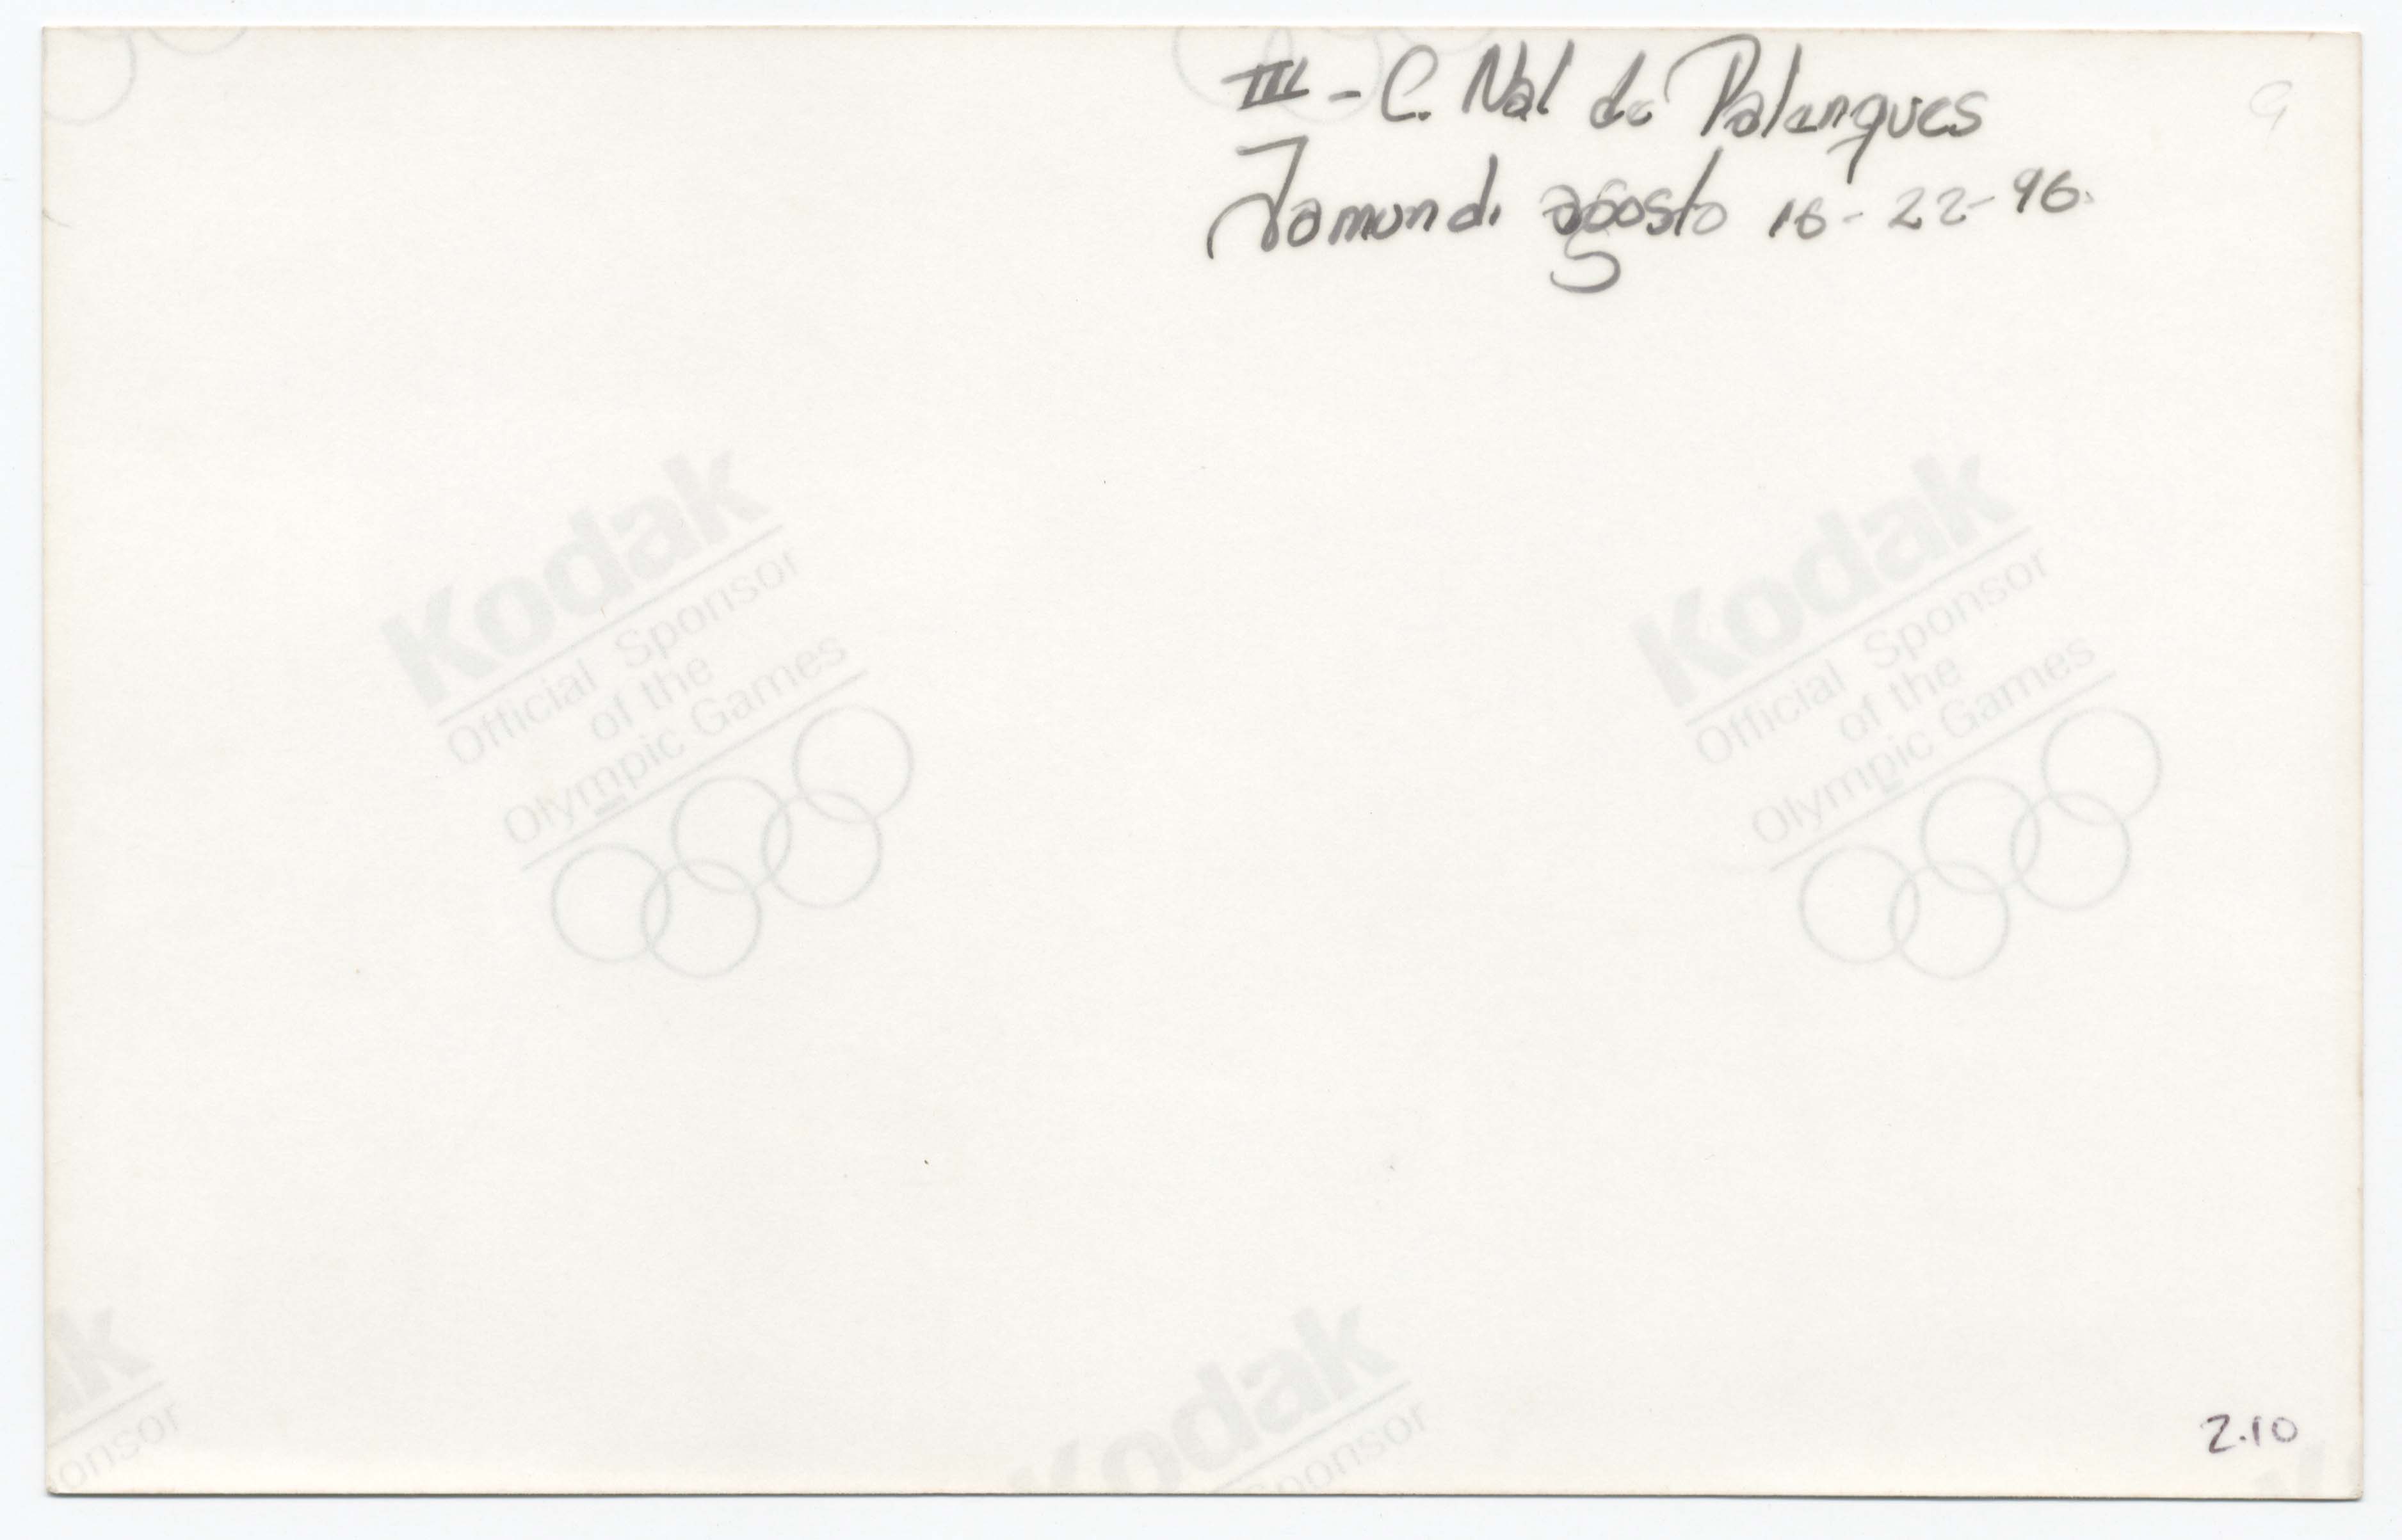 III - C. Nal de Palenques
Jamundi agosto 16-22-96.
9
Kodak
Official Sponsor
of the
Olympic Games
Kodak
Official Sponsor
of the
Olympic Games
ak
onsor
Kodak
ponsor
2.10